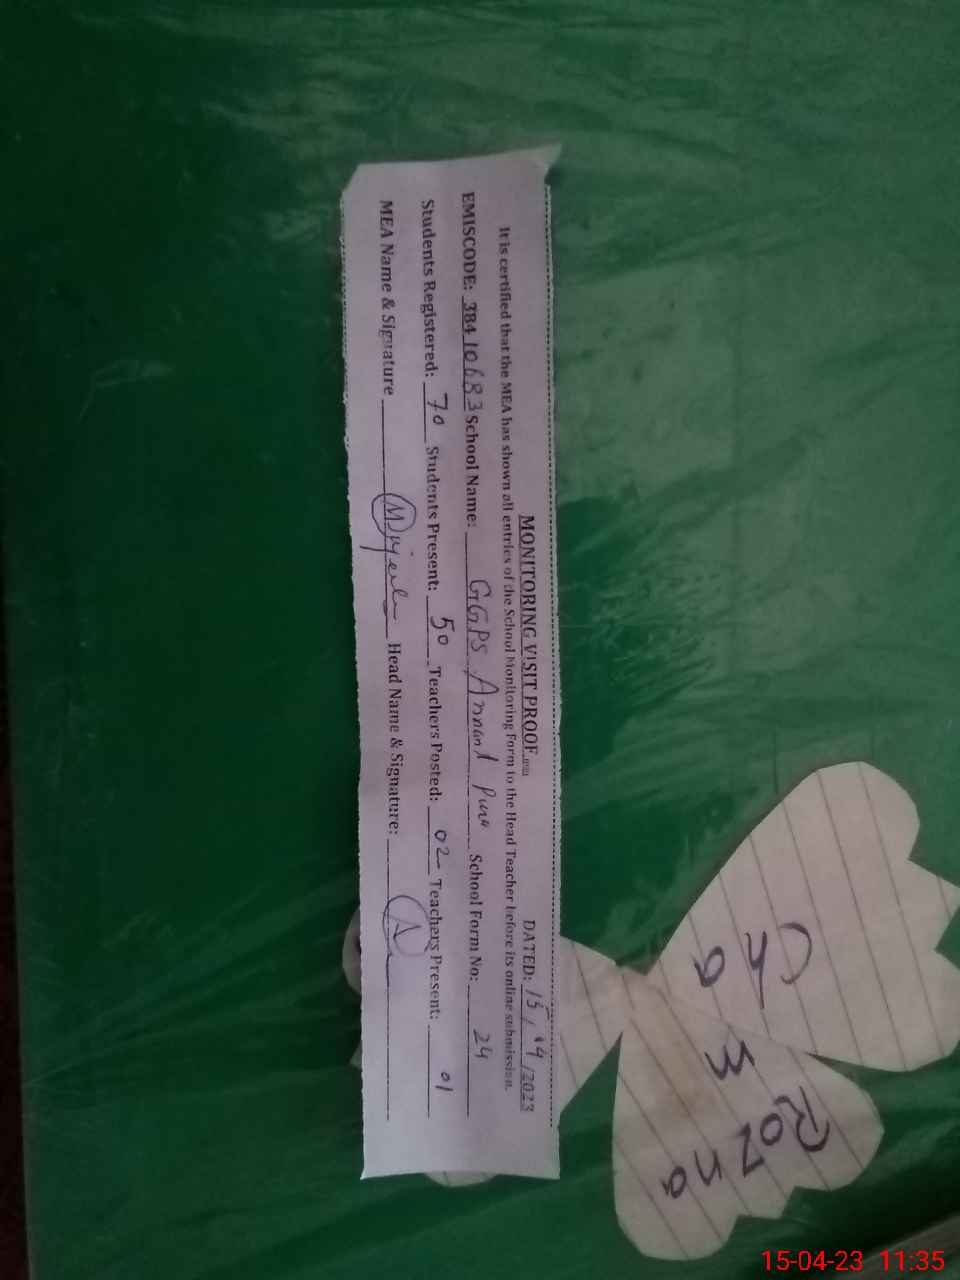 MONITORING VISIT PROOF DATED: 15/04/2023
It is certified that the MEA has shown all entries of the School Monitoring Form to the Head Teacher before its online submission.
EMISCODE: 38410683 School Name: GGPS Anant Pura School Form No: 24
Students Registered: 70 Students Present: 50 Teachers Posted: 02 Teachers Present: 01
MEA Name & Signature Head Name & Signature:
Cha
m
Rozna
15-04-23 11:35